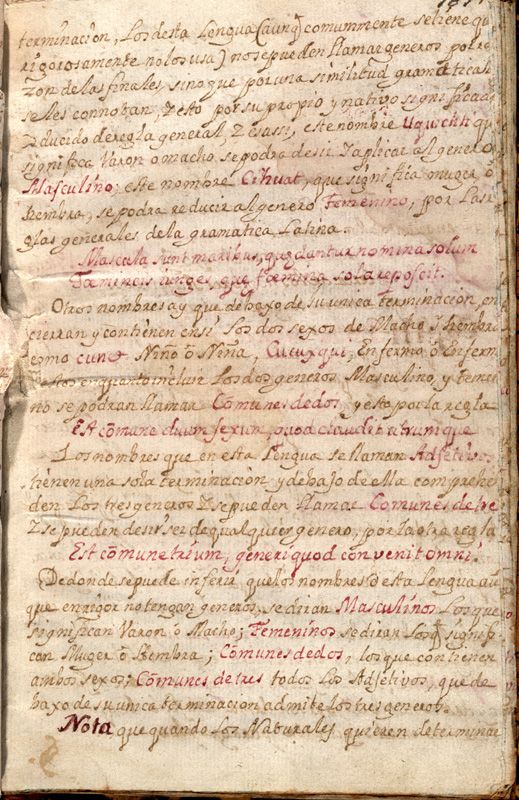 terminacion, Los desta Lengua (aunq̃ comummente se tiene qe
rigorosamente no los usa) no se pueden llamar generos por ra
zon de las finales sino que por una similitud gramatical
se les connotan, z esto por su propio y nativo significado
reducido de regla general, z es assi, este nombre Uquichti que
significa Varon o macho, se podra desir, z aplicar al genero
Masculino; este nombre Cihuat, que significa muger o
hembra, se podra reducir al genero Femenino, por las re
glas generales de la gramatica Latina.
Mascula sunt maribus, que dantur nomina solum
Fæmineis iunges, que fœmina sola reposcit.
Otros nombres ay que debaxo de su unica terminacion en
cierran y contienen en si los dos sexos de Macho y hembra
como cune Niño ò Niña, Cucuxqui, Enfermo ò Enferm
Estos en quanto incluin los dos generos, Masculino, y feme
no se podran llamar Comunes de dos, y esto por la regla
Est cõmune duum sexum, quod claudit utrumque
Los nombres que en esta Lengua se llaman Adjetivos
tienen una sola terminacion y debajo de ella comprehe
den los tres generos z se pueden llamar Comunes de tre
z se pueden desir ser de qualquier genero, por la otra regla
Est cõmune trium, generi quod convenit omni.
De donde se puede inferir que los nombres d esta Lengua au
que en rigor no tengan generos, se diran Masculinos los que
significan Varon ò Macho; Femeninos se diran los q̃ signifi
can Muger ò Hembra; Comunes de dos, los que contienen
ambos sexos; Comunes de tres todos los Adjetivos, que de
baxo de su unica terminacion admite los tres generos.
Nota que quando los Naturales quieren determinar